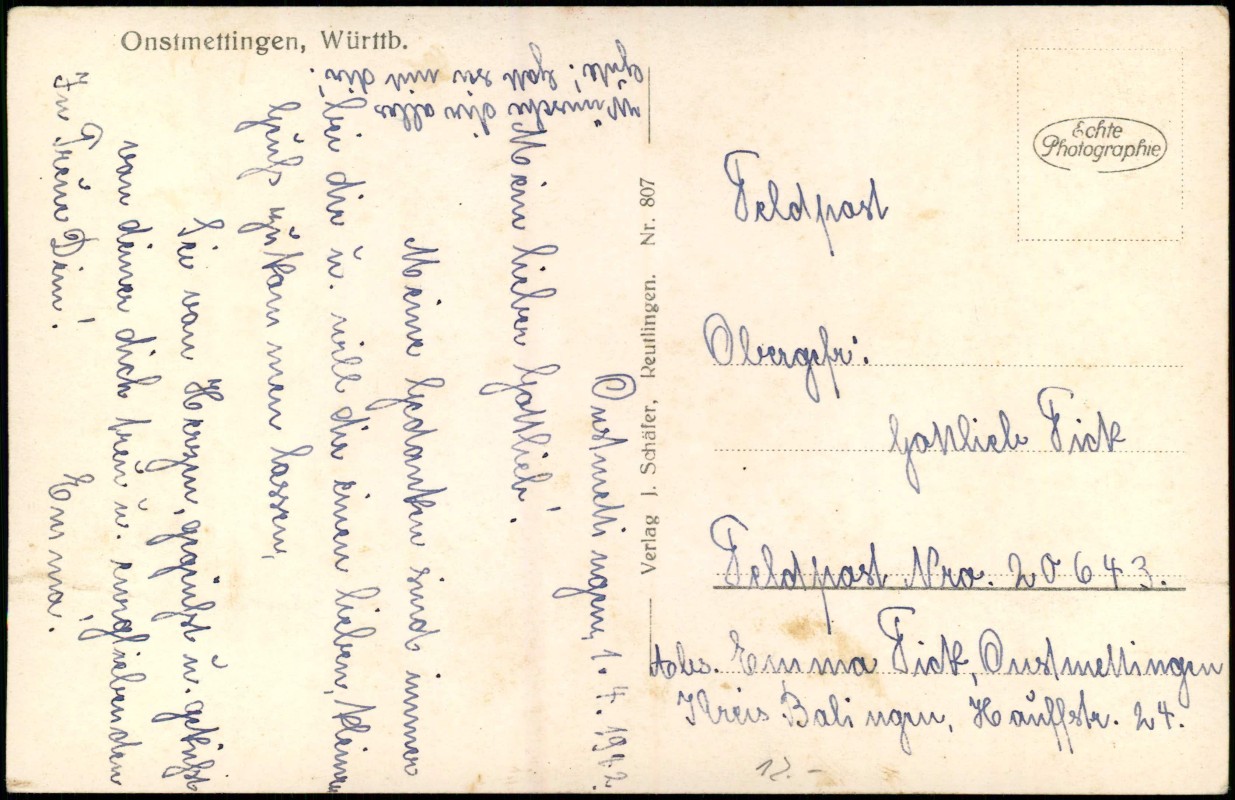 Onstmettingen, Württb.
Echte
Photographie
Verlag J. Schäfer, Reutlingen. Nr. 807
Onstmettingen, 1. 4. 1942.
Mein lieber Gottlieb!
Meine Gedanken sind immer
bei dir u. will dir einen lieben, kleinen
Gruß zukommen lassen,
Sei von Herzen, gegrüßt u. geküßt
von deiner dich treu u. ewigliebenden
In Treue Dein! Emma!
Wünsche dir alles
Gute! Gott sei mit dir!
Feldpost
Obergefr:
Gottlieb Fick
Feldpost Nro. 20643.
Abs. Emma Fick, Onstmettingen
Kreis Balingen, Hauffstr. 24.
12.-